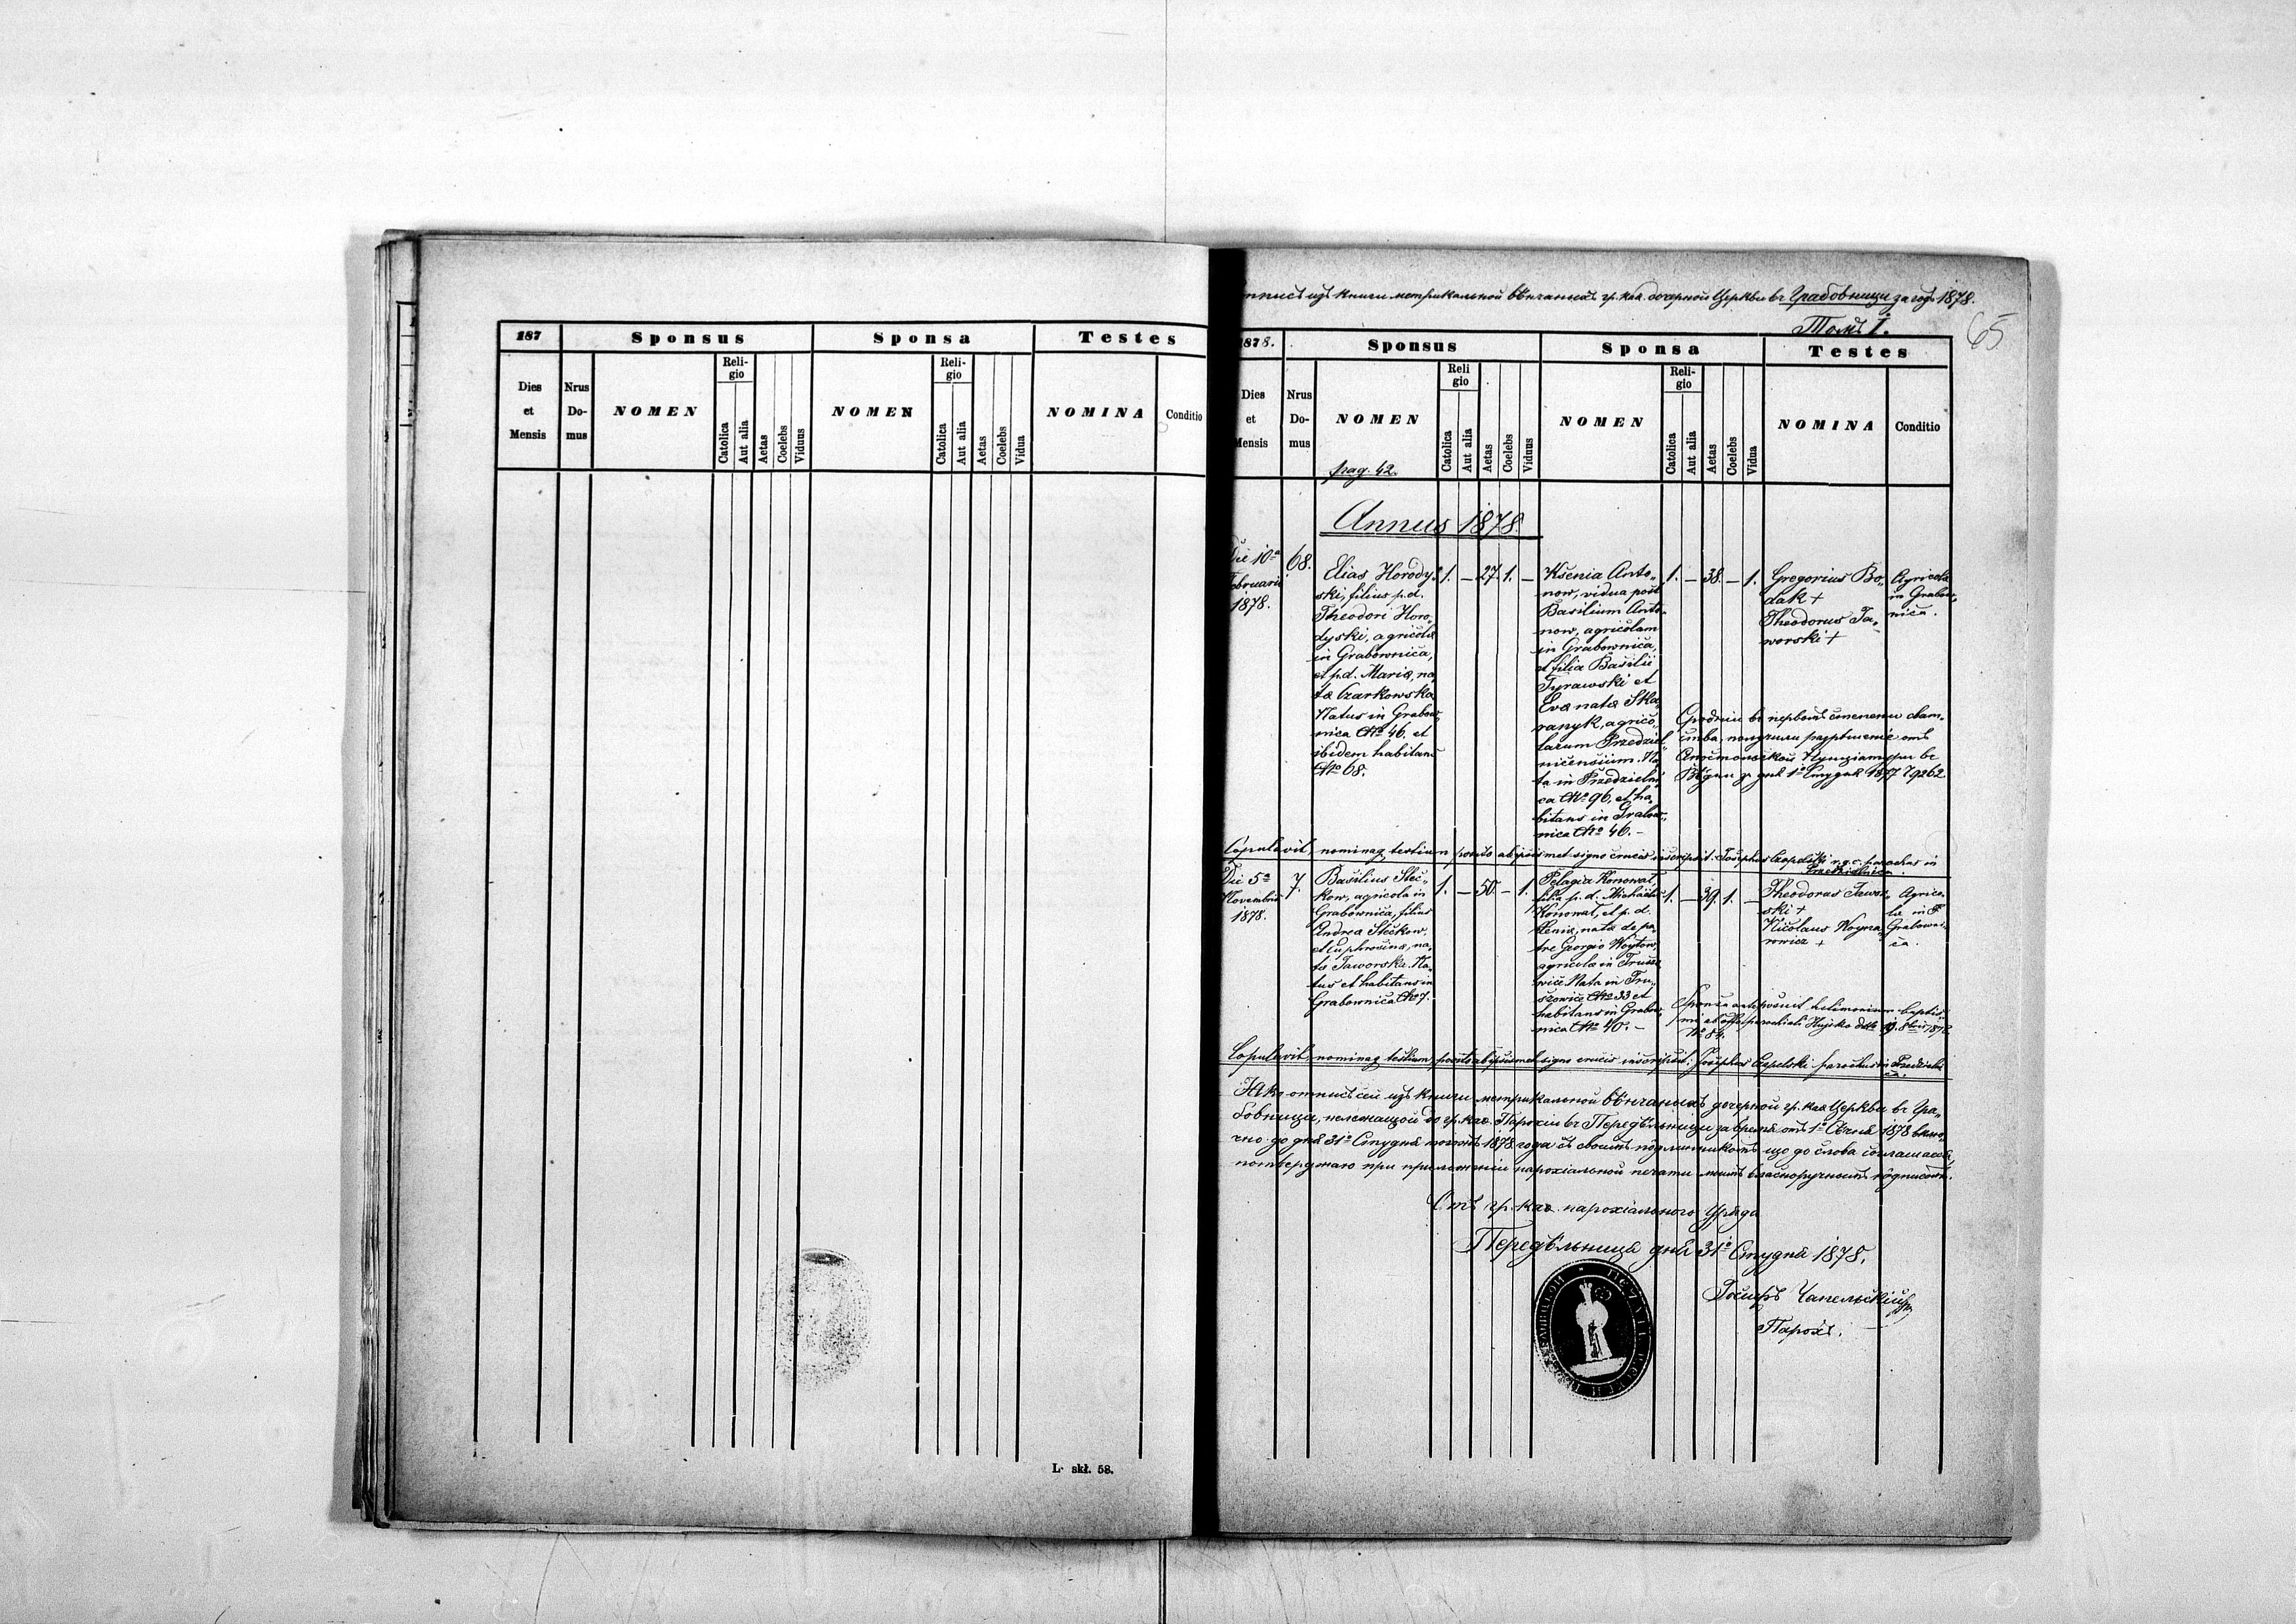 187
Sponsus
Sponsa
Testes
Dies
et
Mensis
Nrus
Do-
mus
NOMEN
Reli-
gio
Catolica
Aut alia
Aetas
Coelebs
Viduus
NOMEN
Reli-
gio
Catolica
Aut alia
Aetas
Coelebs
Vidua
NOMINA
Conditio
L. skł. 58.
изъ книги метрикальной вѣнчаныхъ гр. каѳ. дочерной Церкви въ Грабовници за годъ 1878.
Томъ I.
65
1878.
Sponsus
Sponsa
Testes
Dies
et
Mensis
Nrus
Do-
mus
NOMEN
pag. 42.
Reli
gio
Catolica
Aut alia
Aetas
Coelebs
Viduus
NOMEN
Reli-
gio
Catolica
Aut alia
Aetas
Coelebs
Vidua
NOMINA
Conditio
Annus 1878.
Die 10ª
Februarii
1878.
68.
Elias Horody-
ski, filius p.d.
Theodori Horo-
dyski, agricolæ
in Grabownica,
et p.d. Mariæ, na-
tæ Czarkowska
Natus in Grabow-
nica No 46, et
ibidem habitans
No 68.
1. — 27. 1. —
Ksenia Anto-
now, vidua post
Basilium Anto-
now, agricolam
in Grabownica,
et filia Basilii
Tyrawski et
Evæ natæ Ska-
ranyk, agrico-
larum Przedziel-
nicensium. Na-
ta in Przedzielni-
ca No 96, et ha-
bitans in Grabow-
nica No 46. –
1. — 38. — 1.
Gregorius Bo-
dak +
Theodorus Ja-
worski +
Agricolæ
in Grabow-
nica.
въ первомъ степени сват-
ства получили разрѣшеніе отъ
въ
дня 1º Студня 1877 79262.
Copulavit, nominaq testium posito ab ipsis met signo crucis inscripsit: Josephus Czapelski r.g.c. parochus in
Przedzielnica.
Die 5ª
Novembris
1878.
7.
Basilius Steć-
kow, agricola in
Grabownica, filius
Andreæ Stećkow,
et Euphrosinæ, na-
tæ Jaworska. Na-
tus et habitans in
Grabownica No 7.
1. — 50. — 1.
Pelagia Konowat,
filia p.d. Michaëlis
Konowat, et p.d.
Xeniæ, natæ de pa-
tre Georgio Woytow,
agricolæ in Trusze-
wice Nata in Tru-
szowice No 33 et
habitans in Grabow-
nica No 40. –
1. — 39. 1. —
Theodorus Jawor-
ski +
Nicolaus Woyna-
rowicz +
Agrico-
læ in
Grabowni-
ca.
Sponsa testimonium baptis-
mi ab offo parochiali Hujsko ddto 8bris 1878
No 84.
Copulavit, nominaq testium, posito ab ipsis met signo crucis inscripsit: Josephus Czapelski parochus in Przedzielni-
ca.
Яко отписъ сей изъ книги метрикальной вѣнчаныхъ дочерной гр. каѳ. Церкви въ Гра-
бовници, належащой до гр. каѳ. Парохіи въ Передѣльници за время отъ 1º Сѣчня 1878 вклю-
чно до дня 31º Студня 1878 года съ своимъ подлинникомъ що до слова соглашаеся,
потверджаю при приложеніи парохіальной печати моимъ власноручнымъ подписомъ.
Отъ гр. каѳ. парохіального Уряда
Передѣльница дня 31º Студня 1878.
Іосифъ Чапельскій
Парохъ.